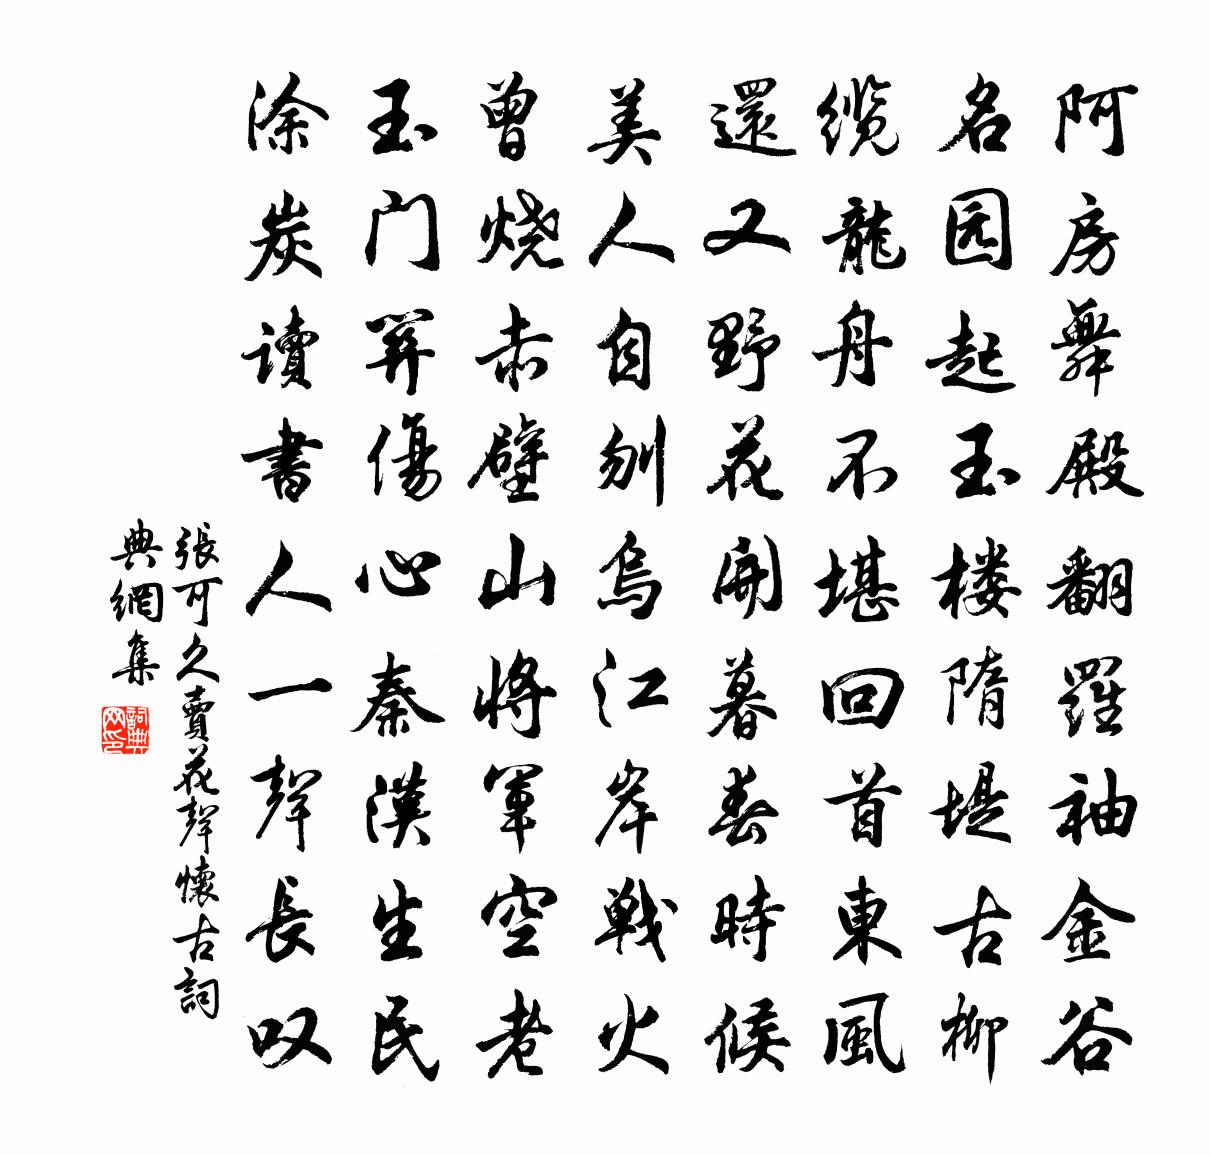 阿房舞殿翻羅袖金谷
名园起玉楼隋堤古柳
缆龍舟不堪回首東風
還又野花開暮春時候
美人自刎烏江岸戰火
曾烧赤壁山将軍空老
玉门関傷心秦漢生民
涂炭讀書人一聲長叹
張可久賣花聲懷古詞
典網集
詞典网印